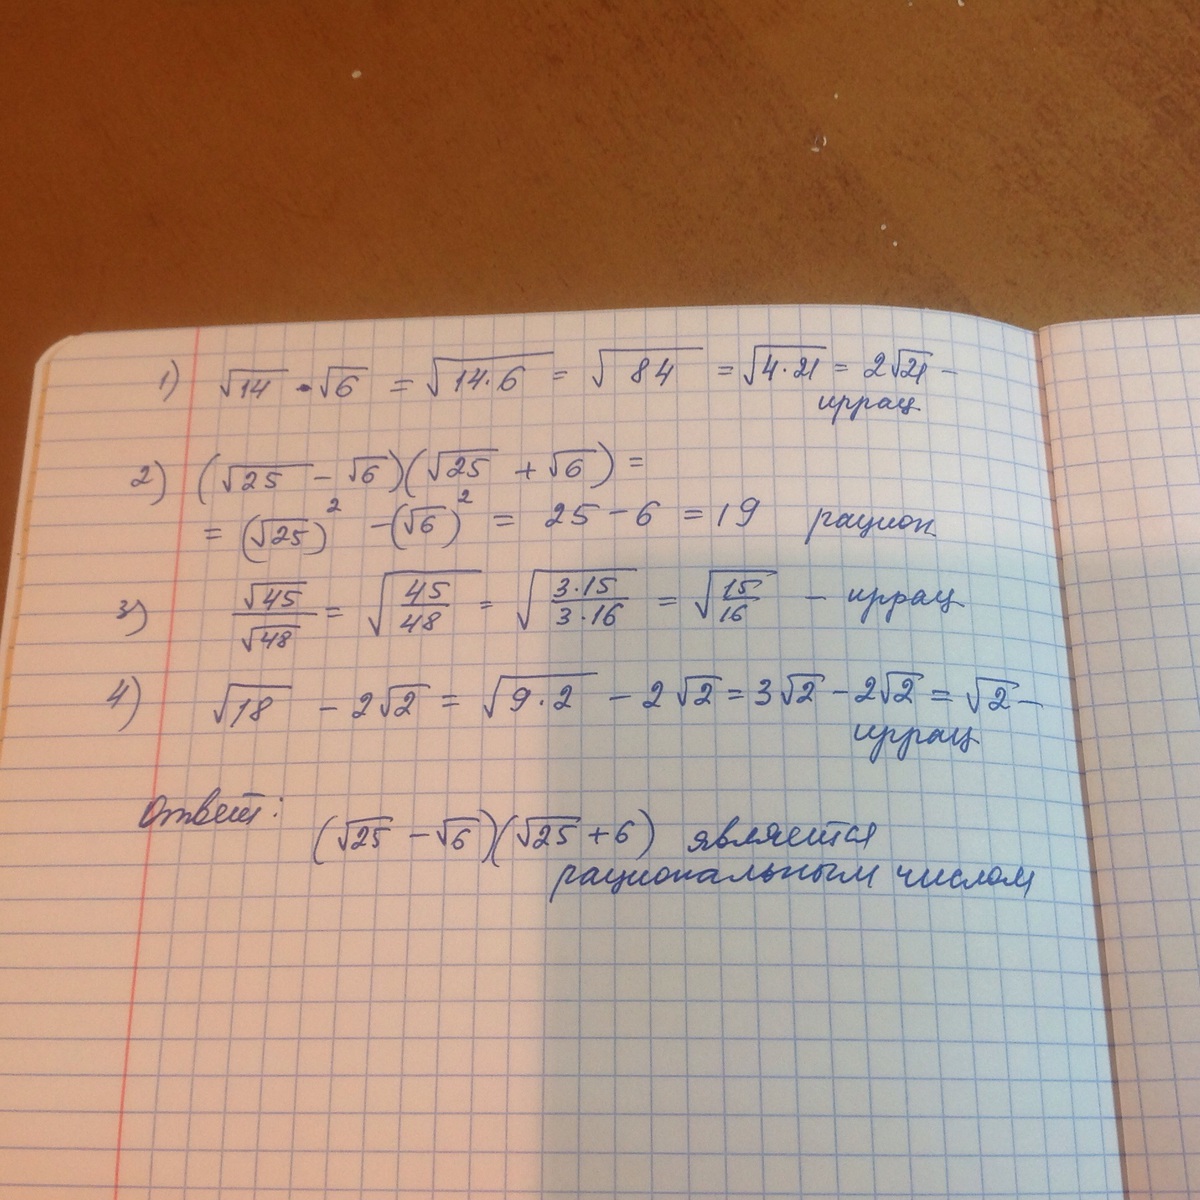 1) √14 · √6 = √(14·6) = √84 = √(4·21) = 2√21 –
иррац
2) (√25 – √6)(√25 + √6) =
= (√25)² – (√6)² = 25 – 6 = 19 рацион
3) √45/√48 = √(45/48) = √((3·15)/(3·16)) = √(15/16) – иррац
4) √18 – 2√2 = √(9·2) – 2√2 = 3√2 – 2√2 = √2 –
иррац
Ответ:
(√25 – √6)(√25 + 6) является
рациональным числом